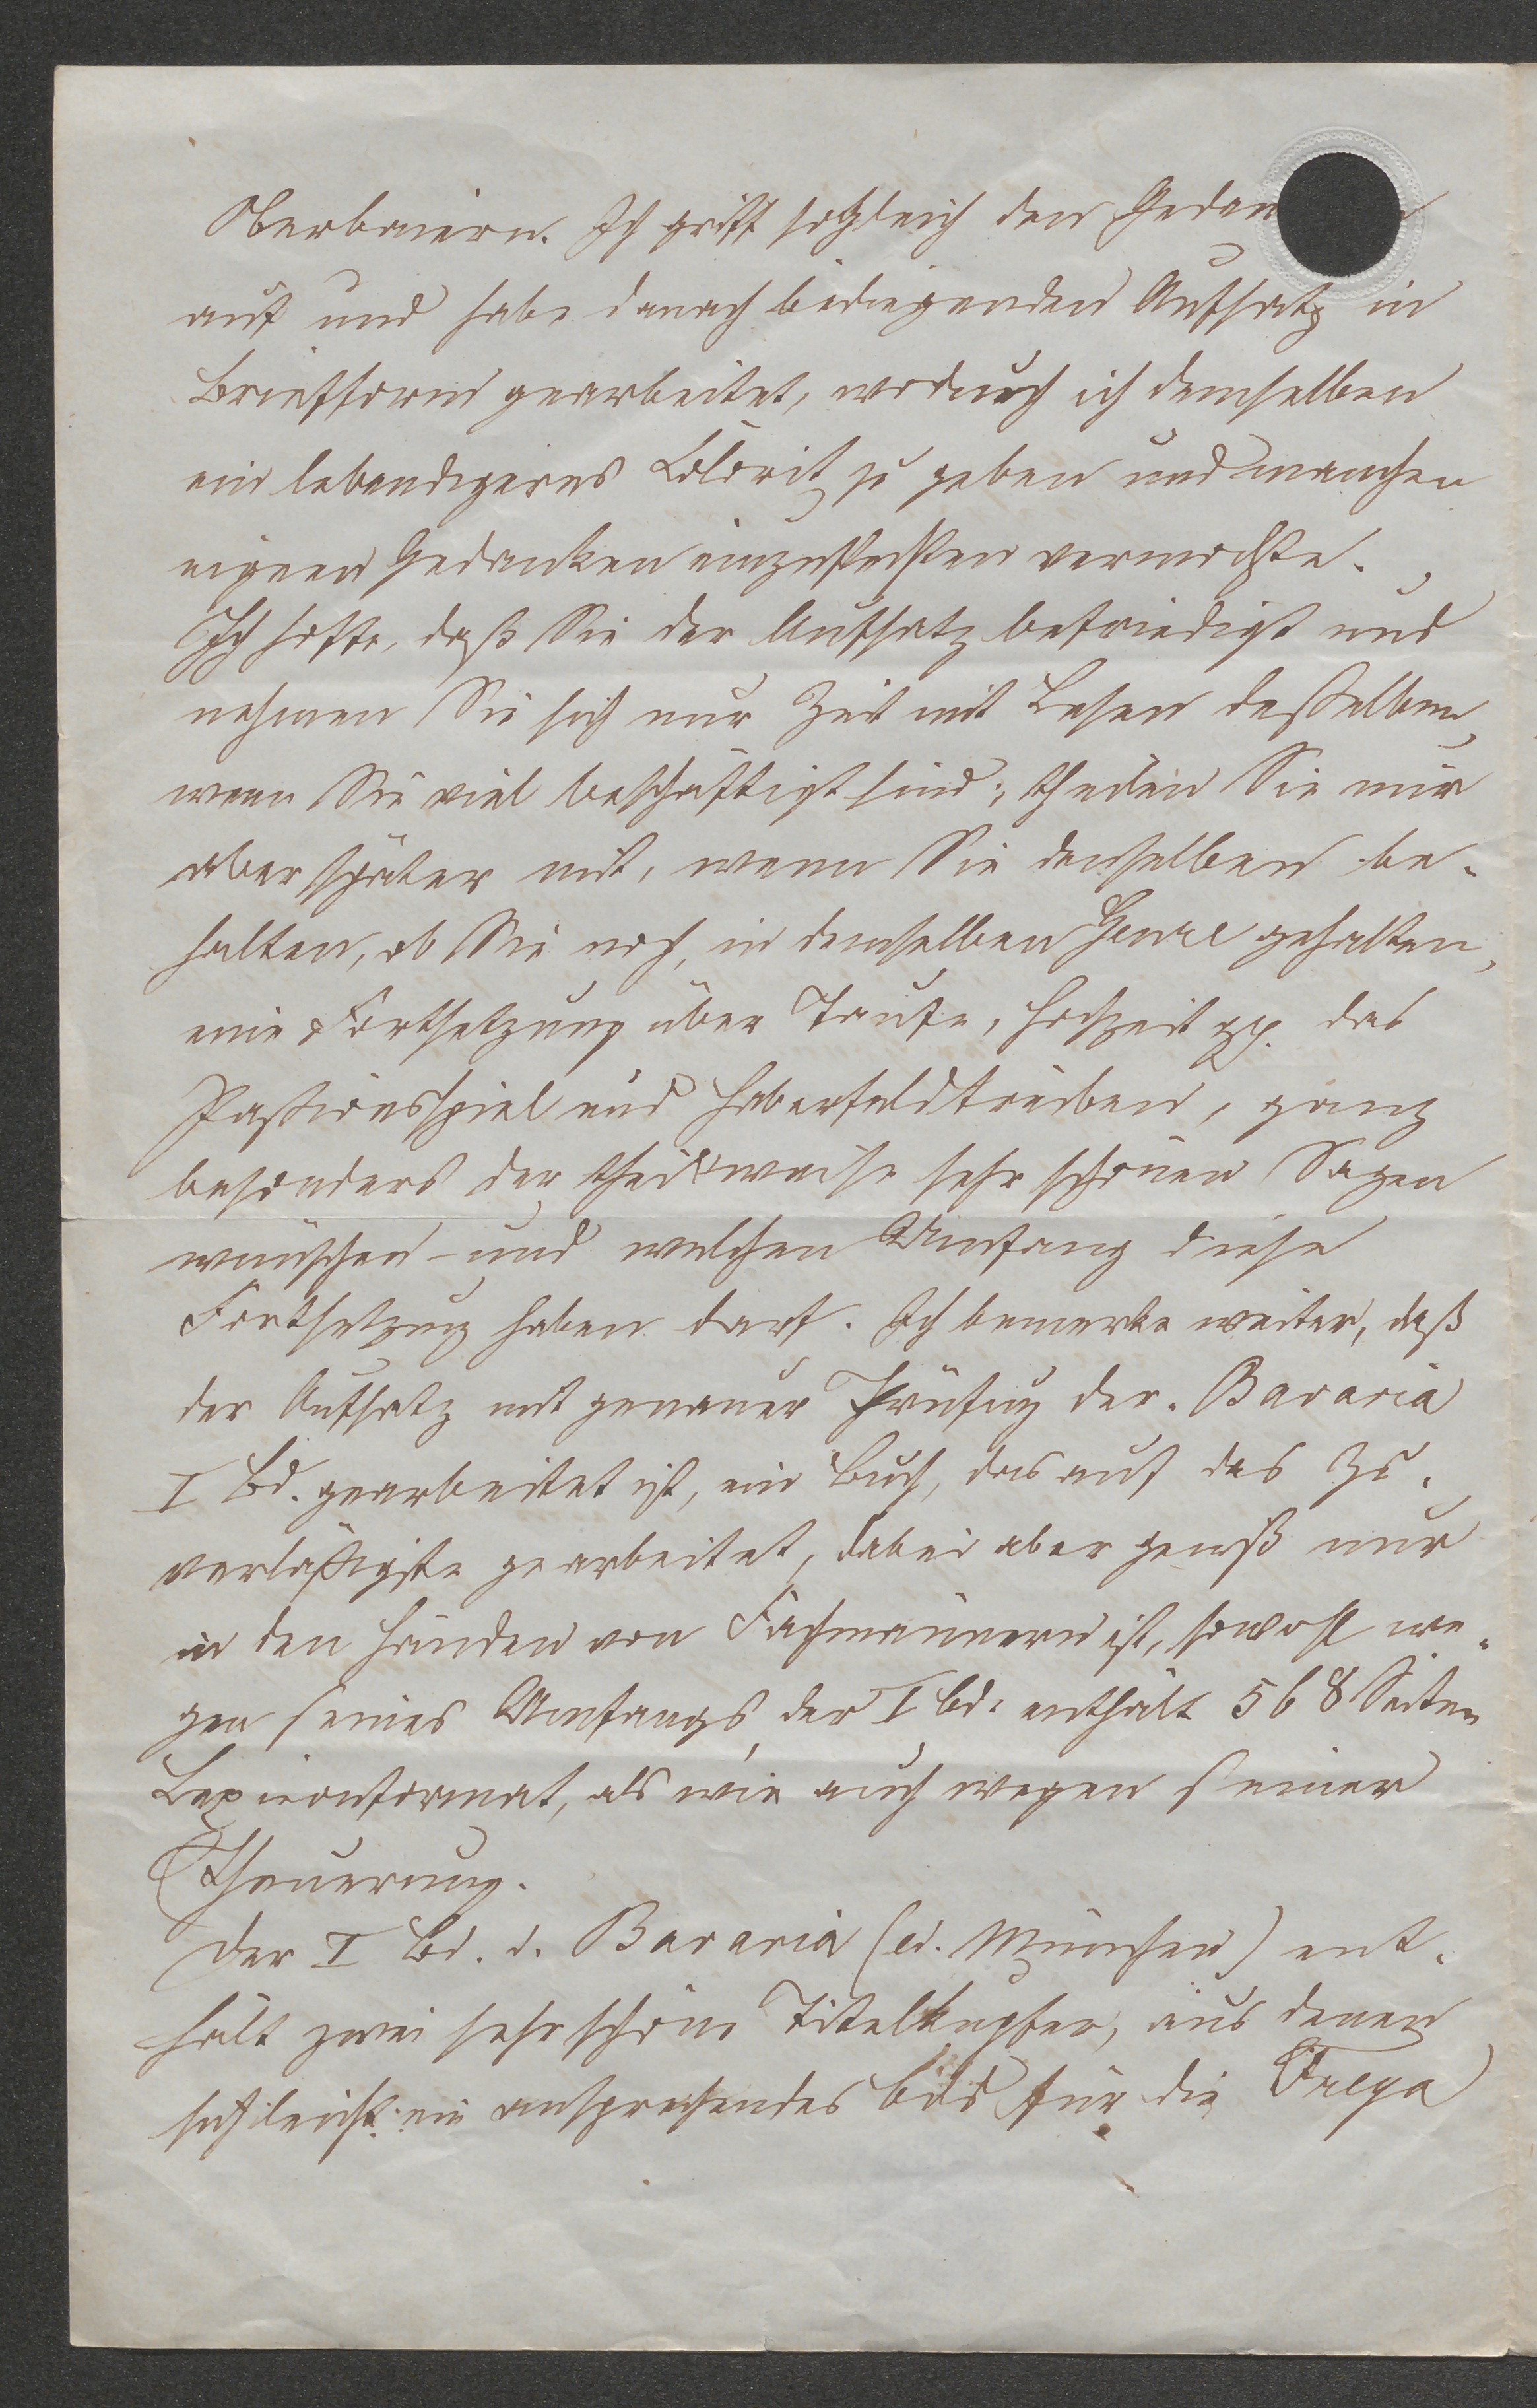 Oberbaiern. Ich griff sogleich den Gedan
auf und habe danach beiliegenden Aufsatz in
Briefform gearbeitet, wodurch ich demselben
ein lebendigeres Colorit zu geben und manchen
eigenen Gedanken einzuflechten vermochte.
Ich hoffe, daß Sie der Aufsatz befriedigt und
nehmen Sie sich nur Zeit mit Lesen desselben,
wenn Sie viel beschäftigt sind; theilen Sie mir
aber später mit, wenn Sie denselben be-
halten, ob Sie noch, in demselben Genre gehalten,
eine Fortsetzung über Taufe, Hochzeit pp. das
Passionsspiel und Haberfeldtreiben, ganz
besonders der theilsweise sehr schönen Sagen
wünschen – und welchen Umfang diese
Fortsetzung haben darf. Ich bemerke weiter, daß
der Aufsatz mit genauer Prüfung der Bavaria
I Bd. gearbeitet ist, ein Buch, das auf das Zu-
verläßigste gearbeitet, dabei aber gewiß nur
in den Händen von Fachmännern ist, sowohl we-
gen seines Umfangs, der I Bd. enthält 568 Seiten
Lexiconformat, als wie auch wegen seiner
Theuerung.
Der I Bd. d. Bavaria (ed. München) ent-
hält zwei sehr schöne Titelkupfer, aus denen
sich leicht ein ansprechendes Bild für die Freya